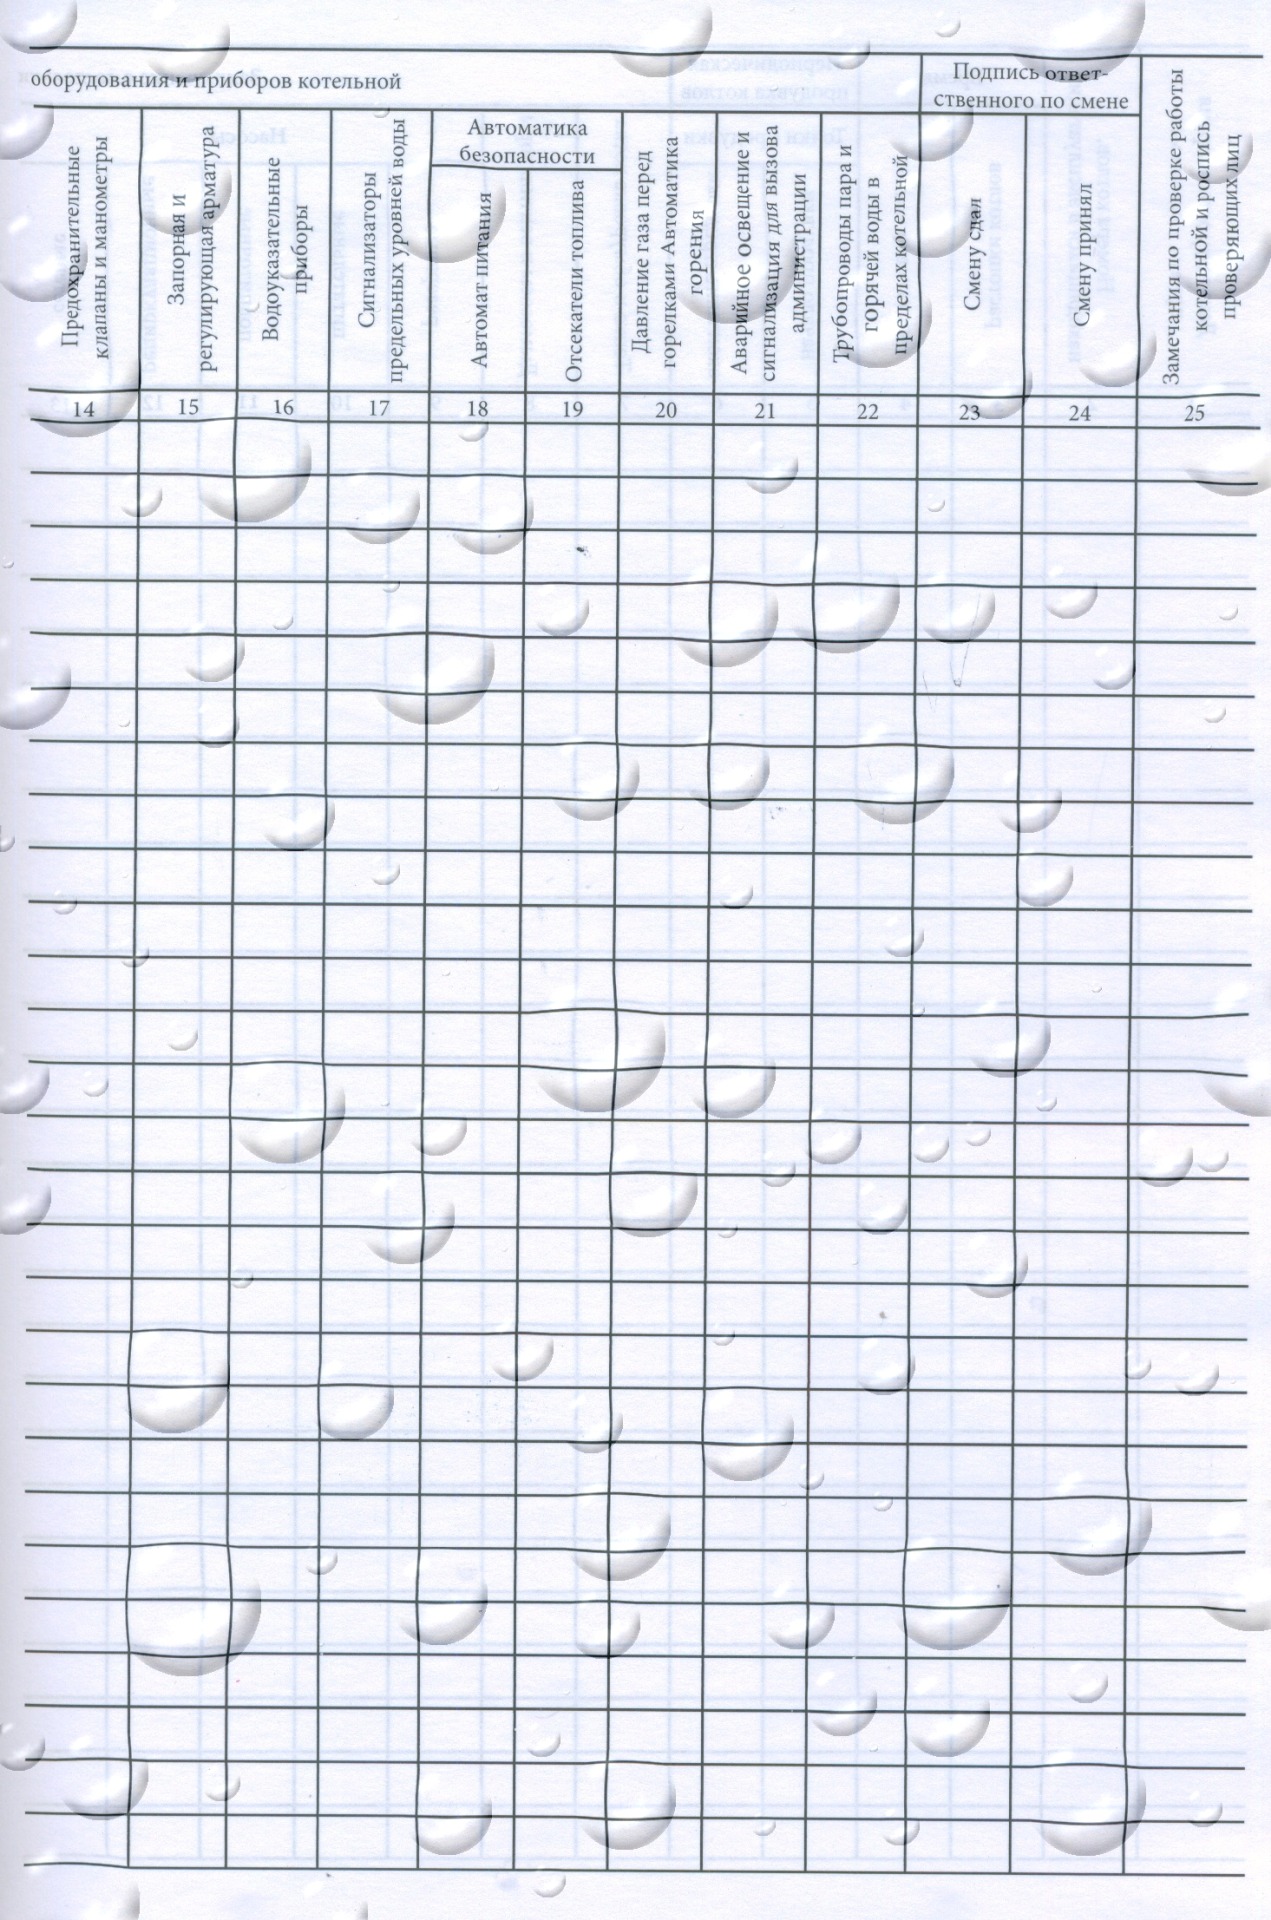 оборудования и приборов котельной
Подпись ответ-
ственного по смене
Предохранительные
клапаны и манометры
Запорная и
регулирующая арматура
Водоуказательные
приборы
Сигнализаторы
предельных уровней воды
Автоматика
безопасности
Автомат питания
Отсекатели топлива
Давление газа перед
горелками Автоматика
горения
Аварийное освещение и
сигнализация для вызова
администрации
Трубопроводы пара и
горячей воды в
пределах котельной
Смену сдал
Смену принял
Замечания по проверке работы
котельной и роспись
проверяющих лиц
14 15 16 17 18 19 20 21 22 23 24 25